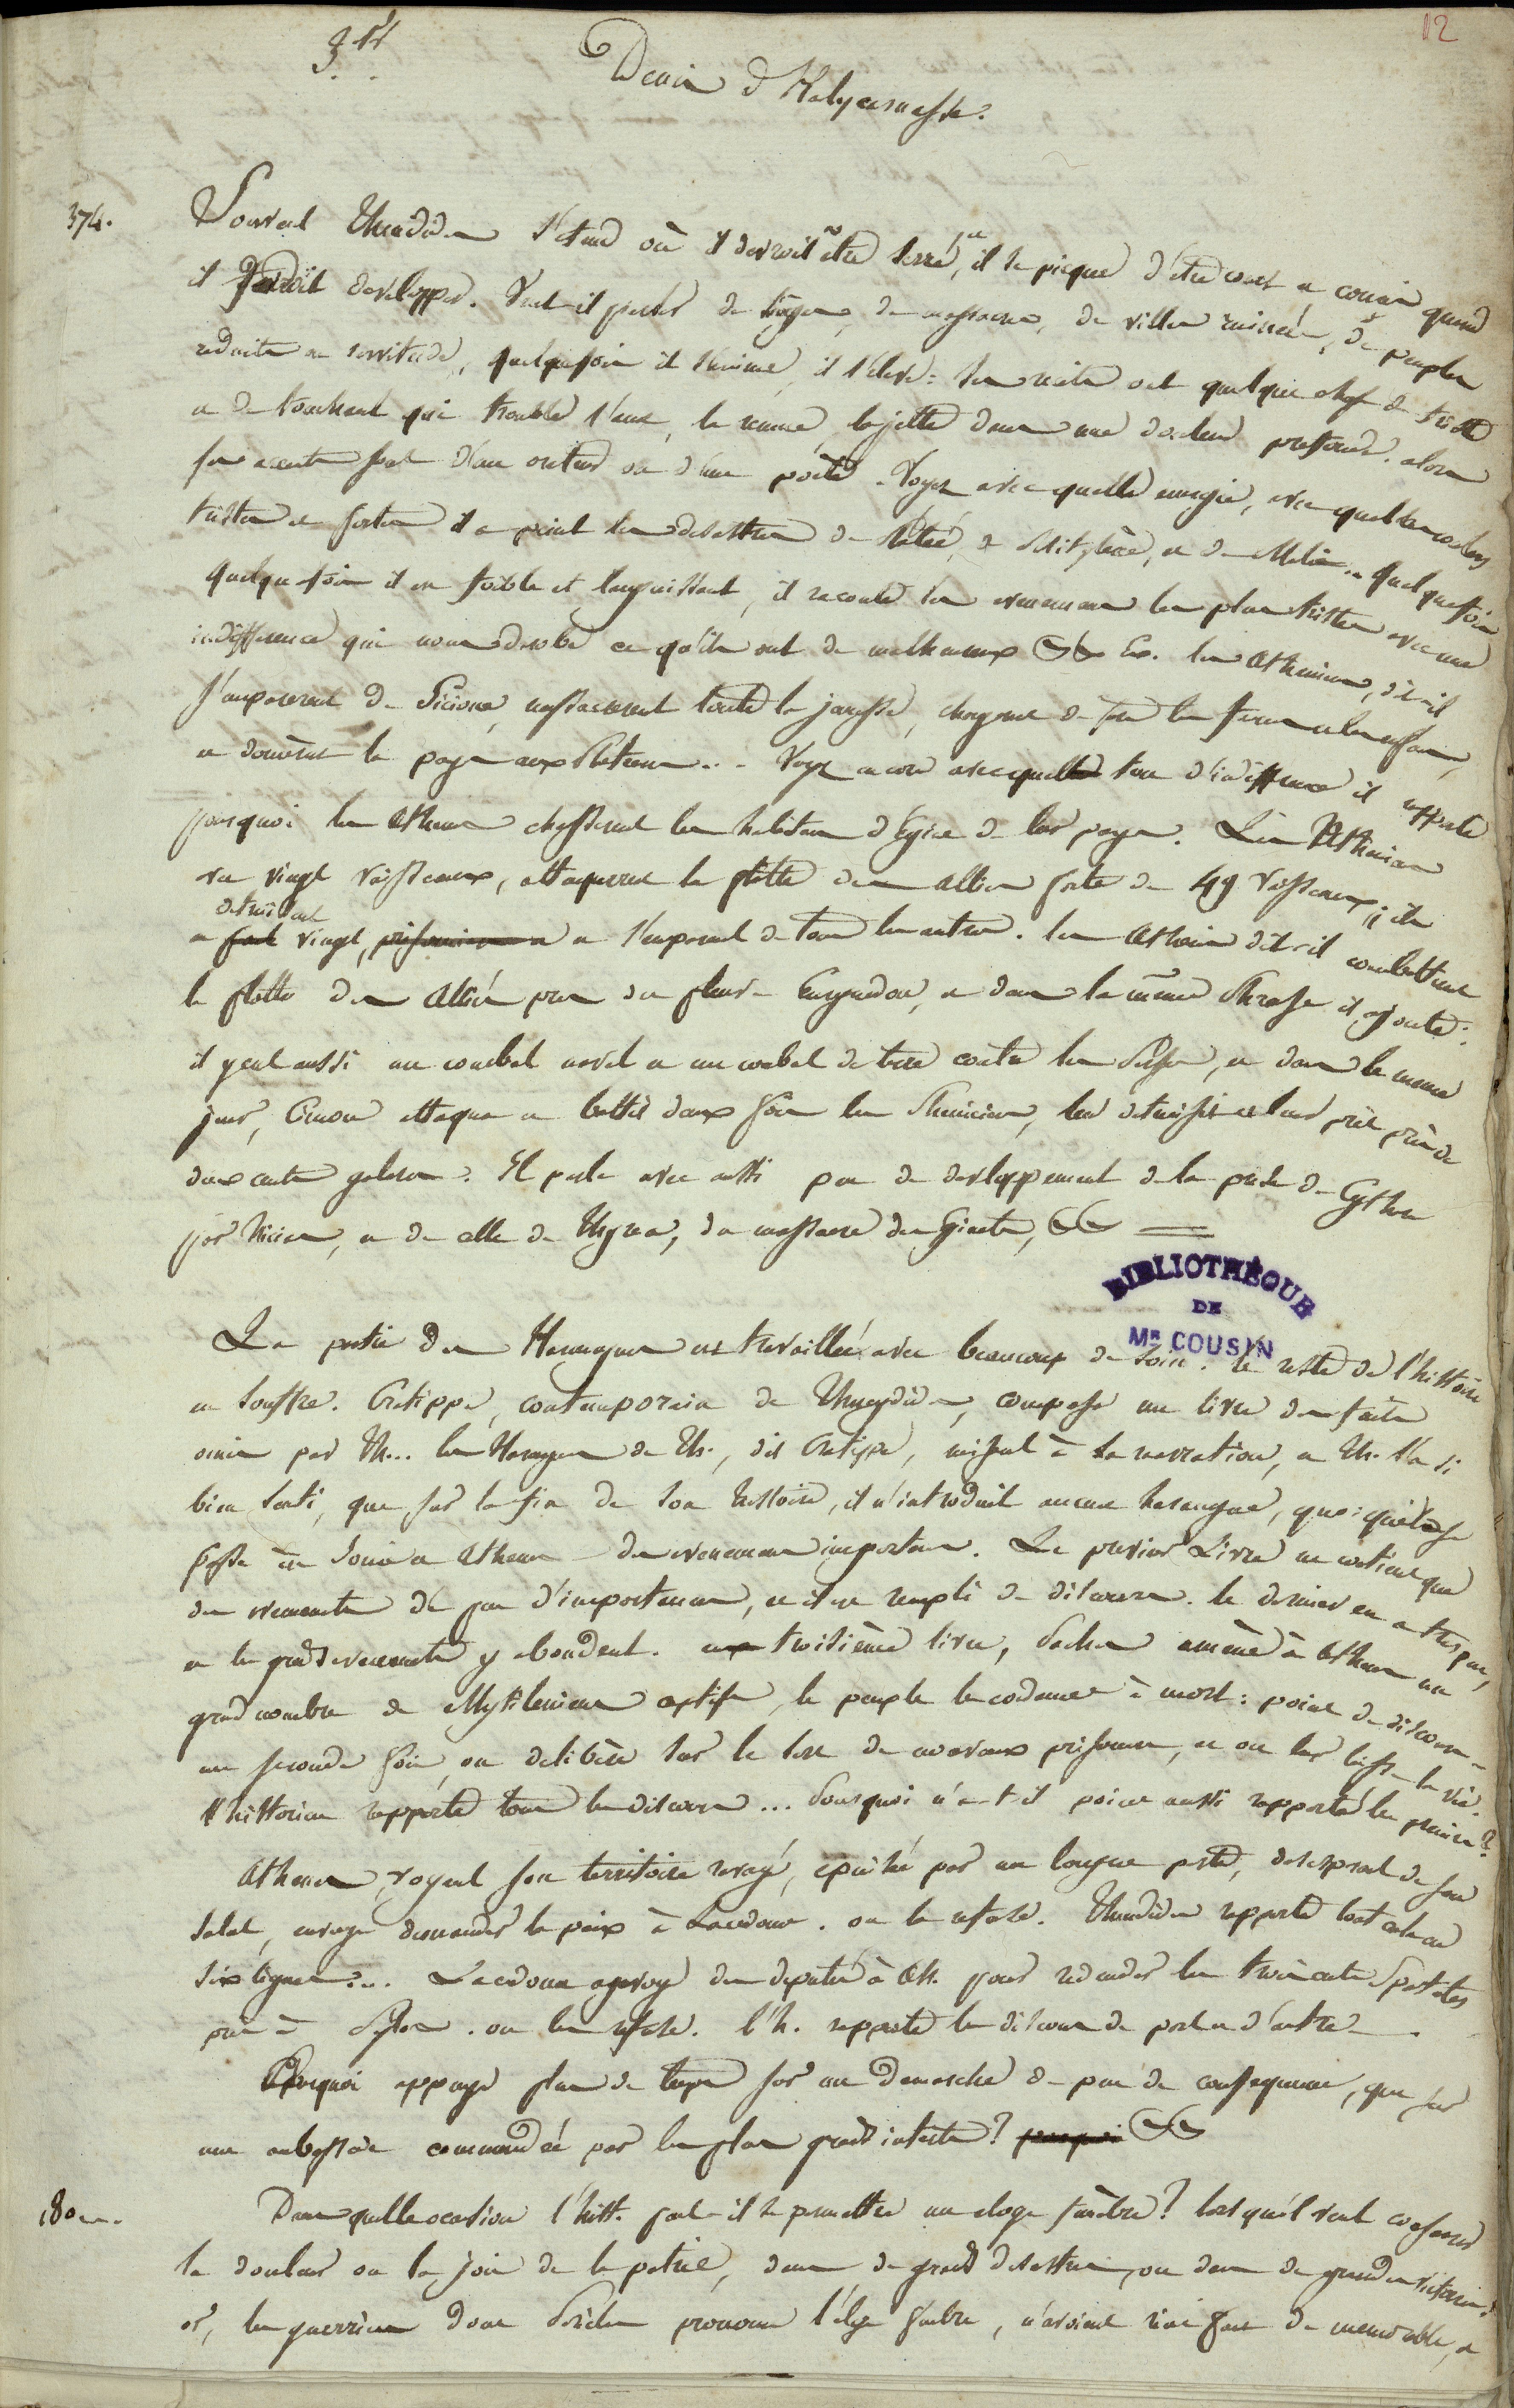 12
Denis d'Halycarnasse.
374.
Souvent Thucidide s'etend où il devroit être serré, il se pique d'être court et concis quand
il devroit developper. Veut-il parler de sièges, de massacres, de villes ruinées, de peuples
reduits en servitude, quelquefois il s'anime, il s'eleve: ses recits ont quelque chose de triste
et de touchant qui trouble l'ame, la remue, la jette dans une douleur profonde. alors
ses accents sont d'un orateur ou d'un poëte. Voyez avec quelle energie, avec quelles couleurs
tristes et fortes il a peint les desastres de Platée, de Mitylène, et de Melos. quelquefois
quelquefois il est foible et languissant, il raconte les evenemens les plus tristes avec une
indifference qui nous derobe ce qu'ils ont de malheureux && Ex. les Atheniens, dit-il
s'emparerent de Sicione, massacrerent toute la jeunesse, chargent de fers les femmes et les enfans,
et donnèrent le pays aux Platéens... Voyez encore avec quel ton d'indifference il rapporte
pourquoi les Atheniens chasserent les habitans d'Egine de leur pays. Les Atheniens
ses vingt vaisseaux, attaquerent la flotte des alliés forte de 49 vaisseaux; ils
detruisent
en vingt, et s'emparent de tous les autres. les Atheniens dit-il combattirent
la flotte des Alliés pres du fleuve Eurymedon, et dans la même Phrase il ajoute:
il y eut aussi un combat naval et un combat de terre contre les Perses, et dans le meme
jour, Cimon attaqua et battit deux fois les Pheniciens, leur detruisit et leur prit près de
deux cents galeres. Il parle avec aussi peu de developpement de la prise de Cythere
par Nicias, et de celle de Thyrea, du massacre des Ginetes, &&
BIBLIOTHÈQUE
DE
MR COUSIN
La partie des Harangues est travaillée avec beaucoup de soin. le reste de l'histoire
en souffre. Cratippe, contemporain de Thucydide, composa un livre des faits
omis par Th... les Harangues de Th., dit Cratippe, nuisent à sa narration, et Th. l'a si
bien senti, que sur la fin de son histoire, il n'introduit aucune harangue, quoiqu'il se
passa en Ionie et Athenes des evenemens importans. Le premier Livre ne contient que
des evenements de peu d'importance, et il est rempli de discours. le dernier en a tres peu,
et les grands evenements y abondent. au troisième livre, Paches amène à Athenes un
grand nombre de Mytileniens captifs, le peuple les condamne à mort: point de discours.
une seconde fois, on delibère sur le sort de nouveaux prisonniers, et on leur laisse la vie.
l'historien rapporte tous les discours... Pourquoi n'a-t-il point aussi rapporté les premiers?
Athenes, voyant son territoire ravagé, epuisée par une longue peste, desesperant de son
salut, envoye demander la paix à Lacedemone. on la refuse. Thucidide rapporte tout cela en
six lignes... Lacedemone envoye des deputés à Ath. pour redemander les trois cents Spartiates
pris à Pylos. on les refuse. l'h. rapporte les discours de part et d'autre.
Pourquoi appuyer plus de temps sur une demarche de peu de consequence, que sur
une ambassade commandée par les plus grands interets? &&
180....
Dans quelle occasion l'hist. peut-il se permettre un eloge funèbre? lorsqu'il veut consacrer
la douleur ou la joie de la patrie, dans de grands desastres, ou dans de grandes victoires.
or, les guerriers dont Periclès prononce l'éloge funebre, n'avoient rien fait de memorable, et